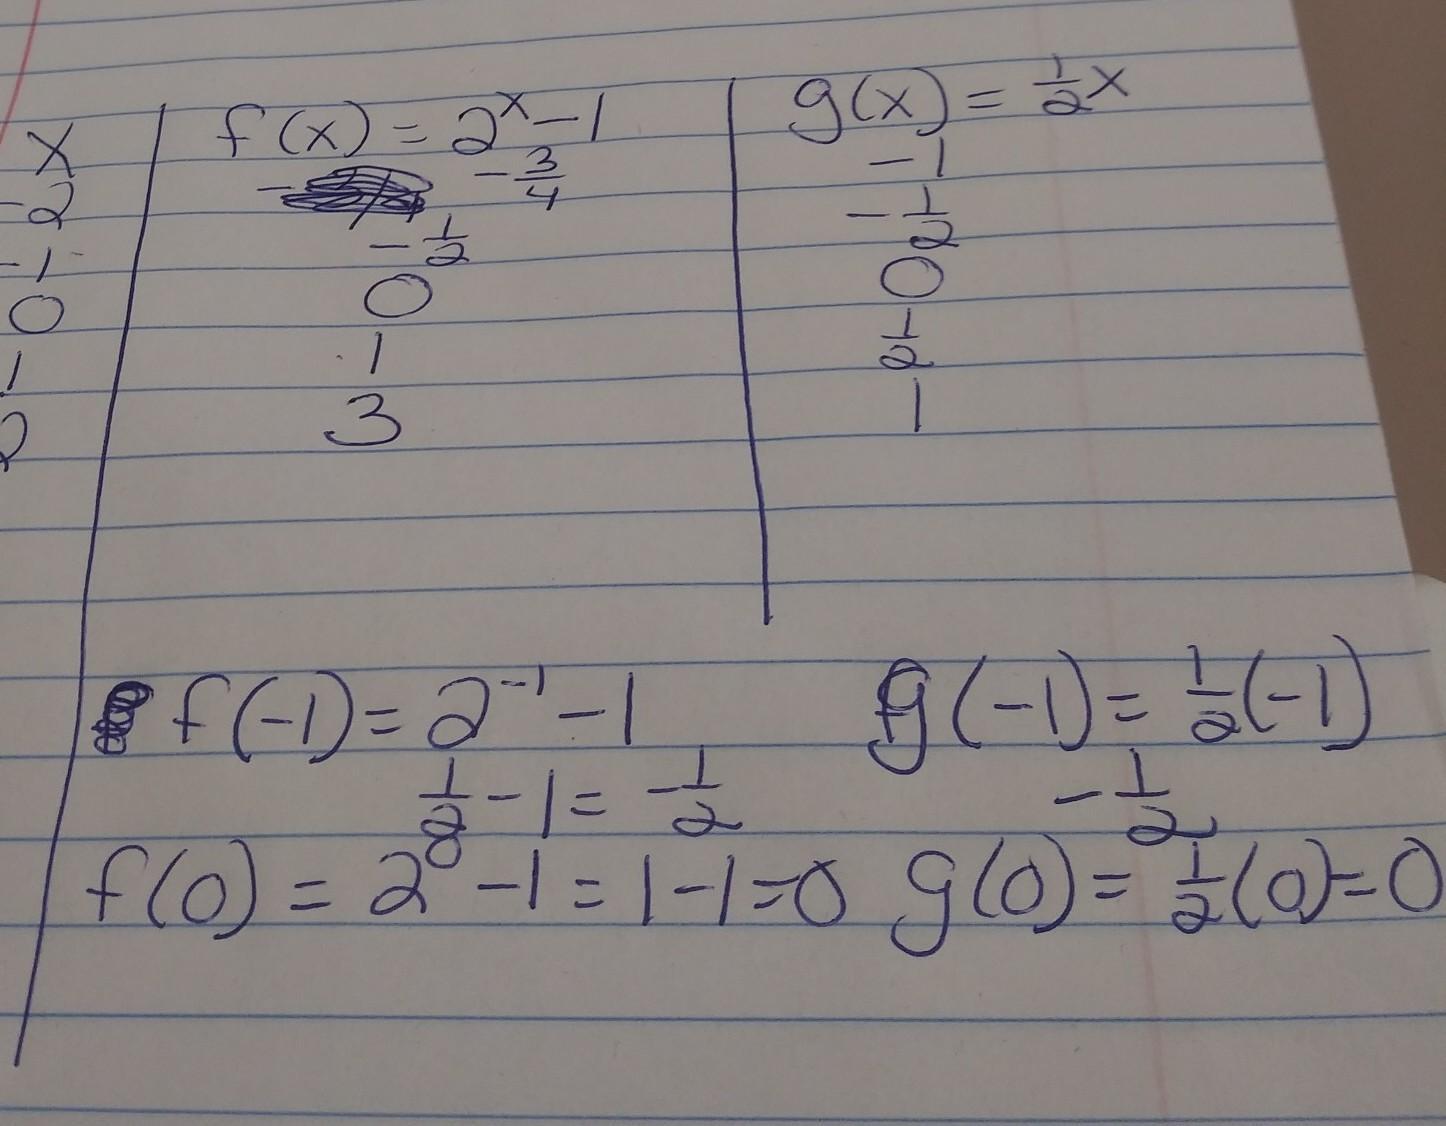 x f(x) = 2^x - 1 g(x) = 1/2 x
-2 - -3/4 -1
-1 -1/2 -1/2
0 0 0
1 1 1/2
2 3 1
f(-1) = 2^-1 - 1 g(-1) = 1/2(-1)
1/2 - 1 = -1/2 -1/2
f(0) = 2^0 - 1 = 1 - 1 = 0 g(0) = 1/2(0) = 0